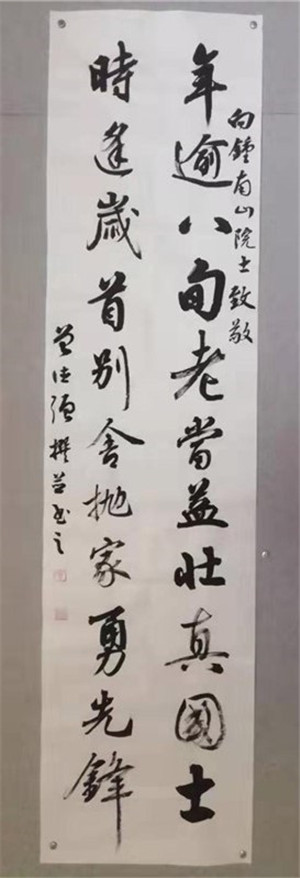 向鍾南山院士致敬
年逾八旬老當益壯真國士
時逢歲首別舍抛家勇先鋒
曾德强撰並书之